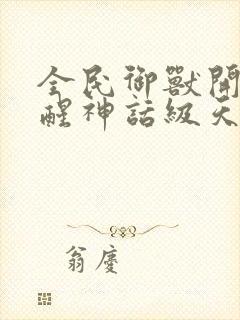 全民御獸開
醒神話級天
翁慶